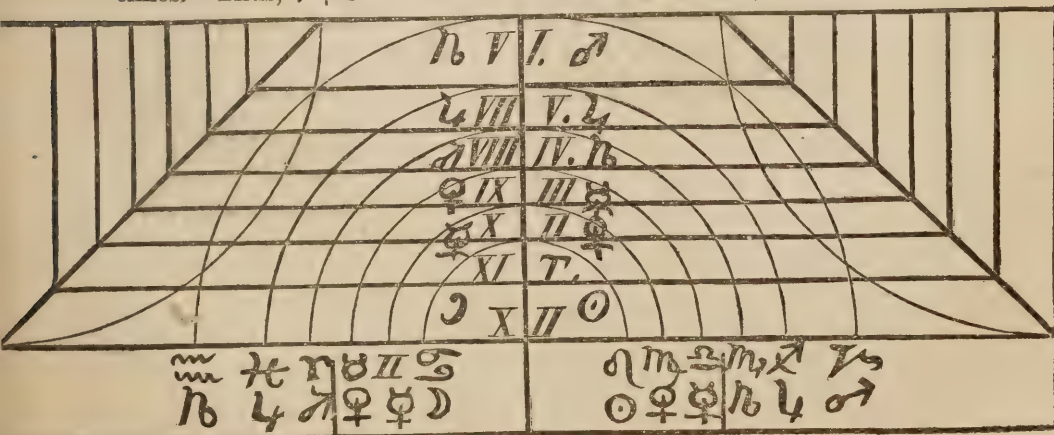 ♄ V I. ♂
♃ VII V. ♃
♂ VIII IV. ♄
♀ IX III ☿
☿ X II ♀
XI I.
☽ X II ☉
♒ ♓ ♈ ♉ ♊ ♋ ♌ ♍ ♎ ♏ ♐ ♑
♄ ♃ ♂ ♀ ☿ ☽ ☉ ♀ ☿ ♄ ♃ ♂